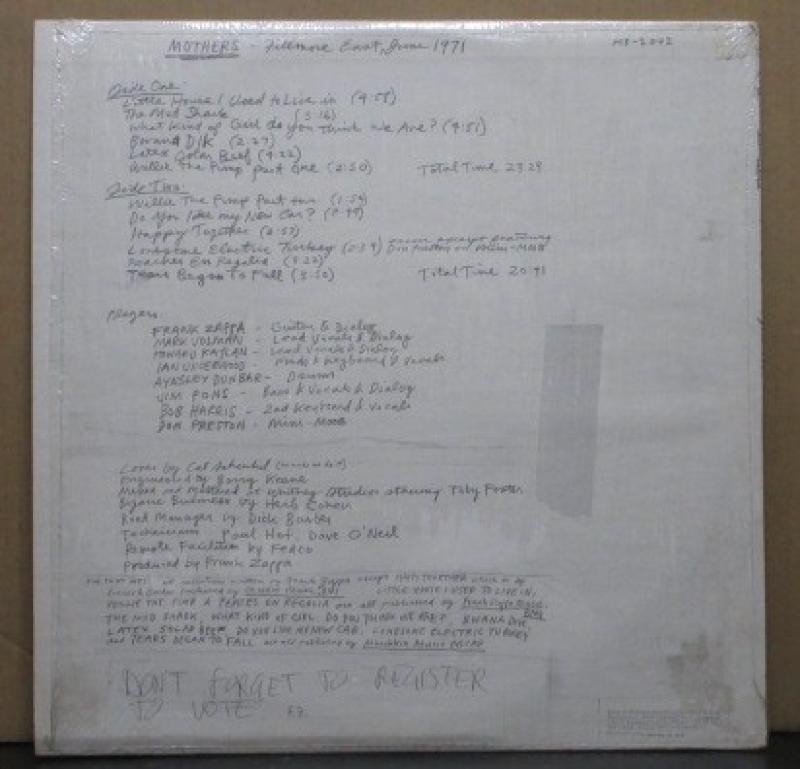 MOTHERS - Fillmore East, June 1971
MS-2042
Side One:
Little House I Used to Live in (4:58)
The Mud Shark (5:16)
What Kind of Girl do you Think We Are? (4:51)
Bwana Dik (2:27)
Latex Solar Beef (4:22)
Willie The Pimp part One (2:50) Total Time 23:29
Side Two:
Willie The Pimp Part two (1:54)
Do You like my New Car?
Happy Together (2:57)
Lonesome Electric Turkey (2:34) Don Preston on Mini-Moog
Peaches En Regalia (3:22)
Tears Began To Fall (3:30) Total Time 20:41
Players
FRANK ZAPPA - Guitar & Dialog
MARK VOLMAN - Lead Vocals & Dialog
HOWARD KAYLAN - Lead Vocals & Dialog
IAN UNDERWOOD - Winds & Keyboard & Vocals
AYNSLEY DUNBAR - Drums
JIM PONS - Bass & Vocals & Dialog
BOB HARRIS - 2nd Keyboard & Vocals
DON PRESTON - Mini-Moog
Cover by Cal Schenkel
Engineered by Barry Keene
Mixed and Mastered at Whitney Studios Toby Foster
Bizarre Business by Herb Cohen
Road Manager by Dick Barber
Technicians Paul Hof, Dave O'Neil
Remote Facilities by Fedco
Produced by Frank Zappa
written by Frank Zappa except HAPPY TOGETHER which is by
LITTLE HOUSE I USED TO LIVE IN,
WILLIE THE PIMP & PEACHES EN REGALIA are all published by
THE MUD SHARK, WHAT KIND OF GIRL DO YOU THINK WE ARE?, BWANA DIK,
LATEX SOLAR BEEF, DO YOU LIKE MY NEW CAR, LONESOME ELECTRIC TURKEY
and TEARS BEGAN TO FALL are all published by
DON'T FORGET TO REGISTER
TO VOTE F.Z.